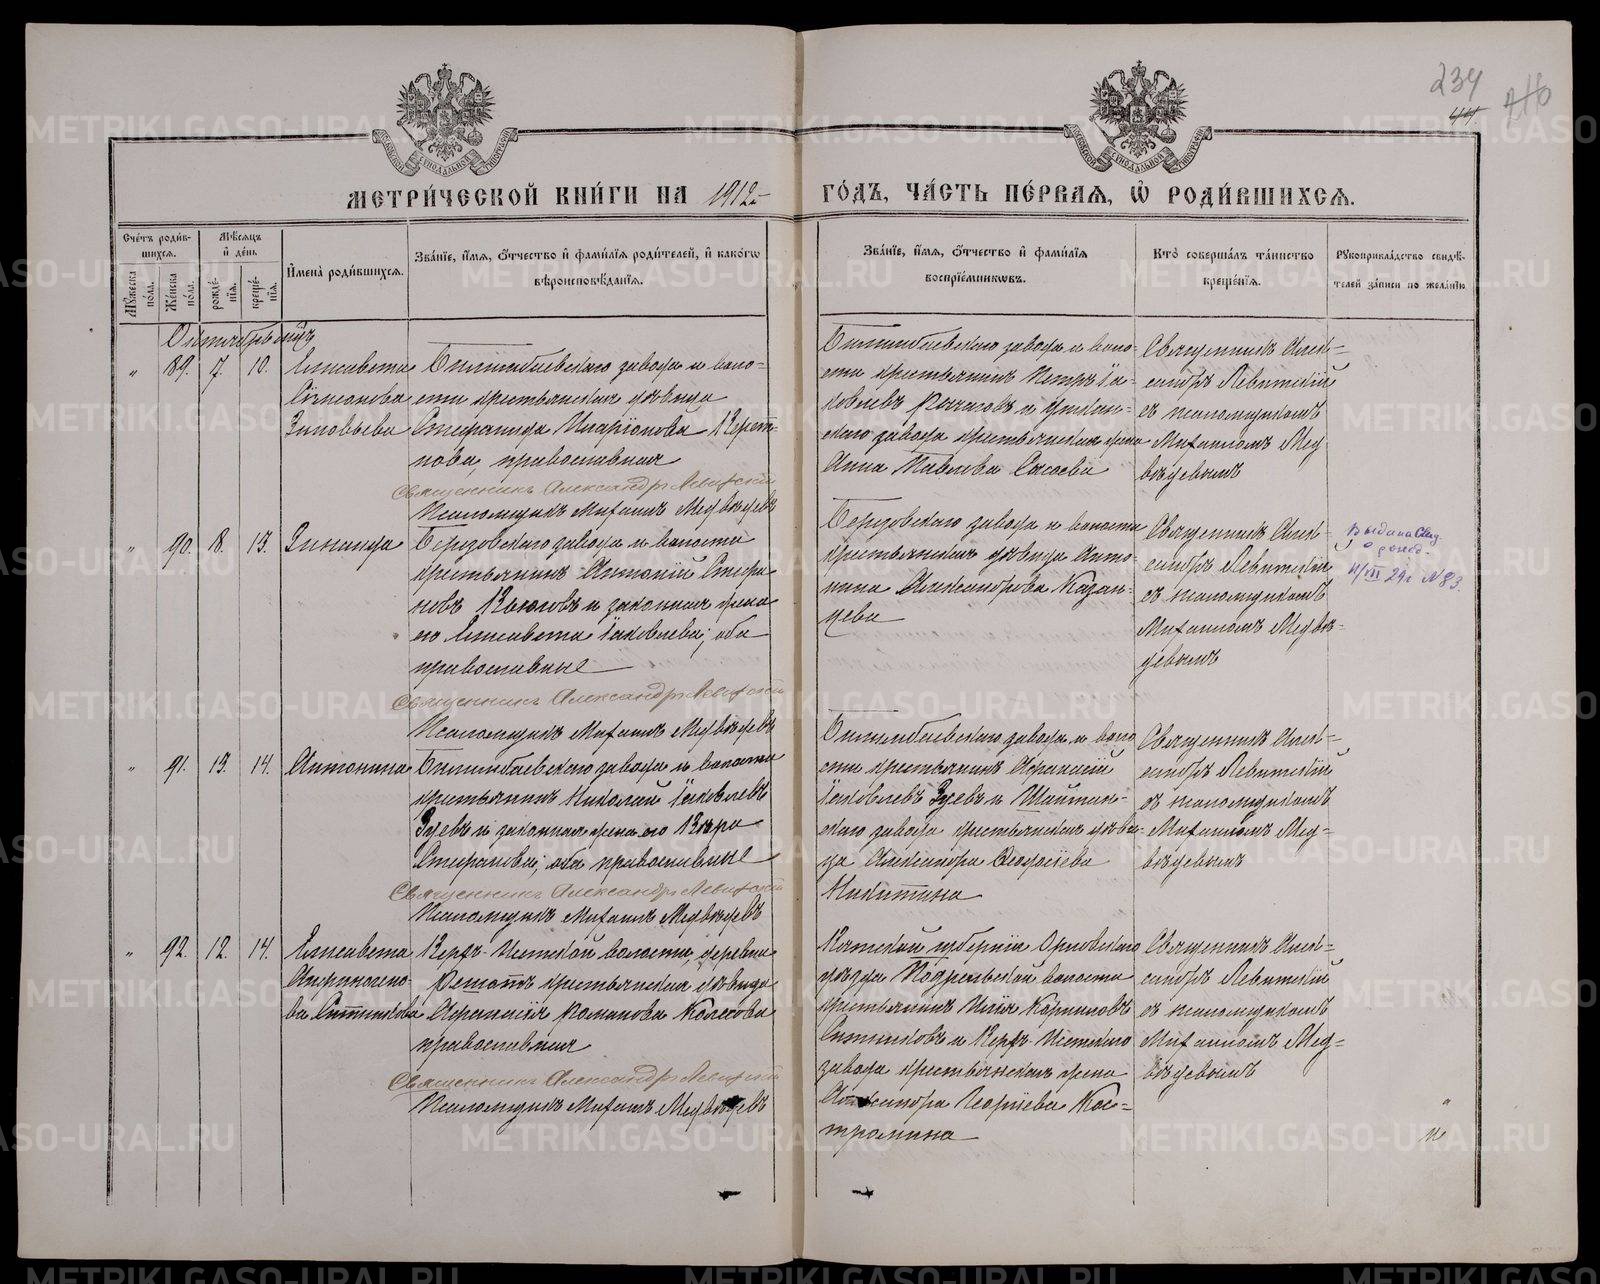 234
44
МЕТРИ́ЧЕСКОЙ КНИ́ГИ НА 1912
ГО́ДЪ, ЧА́СТЬ ПЕ́РВАЯ, Ѡ҆ РОДИ́ВШИХСЯ.
Сче́тъ роди́в-
шихся.
Мѣ́сяцъ
и҆ де́нь
Му́жеска по́ла.
Же́нска по́ла.
рожде́-
нія.
креще́-
нія.
И҆мена̀ роди́вшихся.
Зва́ніе, и҆́мя, ѻ҆́тчество и҆ фами́лія роди́телей, и҆ како́гѡ
вѣроисповѣ́данія.
Зва́ніе, и҆́мя, ѻ҆́тчество и҆ фами́лія
воспріе́мниковъ.
Кто̀ соверша́лъ та́инство
креще́нія.
Рукоприкла́дство свидѣ́-
телей за́писи по жела́нію
Октябрь мцъ
" 89. 7. 10. Елисавета
Симонова
Зиновьева
Билимбаевскаго завода и воло-
сти крестьянская дѣвица
Стефанида Иларіонова
нова православная
Священникъ Александръ Левитскій
Псаломщикъ Михаилъ Медвѣдевъ
Билимбаевскаго завода и воло-
сти крестьянинъ Петръ Іа-
ковлевъ Рычаговъ и Уткин-
скаго завода крестьянская жена
Анна Павлова Сысоева
Священникъ Алек-
сандръ Левитскій
съ псаломщикомъ
Михаиломъ Мед-
вѣдевымъ
" 90. 8. 13. Зинаида
завода и волости
крестьянинъ Антоній Стефа
новъ и законная жена
его Елисавета Іаковлева; оба
православные
Священникъ Александръ Левитскій
Псаломщикъ Михаилъ Медвѣдевъ
завода и волости
крестьянская дѣвица Анто-
нина Александрова Казан-
цева
Священникъ Алек-
сандръ Левитскій
съ псаломщикомъ
Михаиломъ Медвѣ-
девымъ
Выдана Свид
о рожд.
11/III 29 г №83.
" 91. 13. 14. Антонина
Билимбаевскаго завода и волости
крестьянинъ Николай Іаковлевъ
Зуевъ и законная жена его Вѣра
Стефанова; оба православные
Священникъ Александръ Левитскій
Псаломщикъ Михаилъ Медвѣдевъ
Билимбаевскаго завода и воло
сти крестьянинъ Афанасій
Іаковлевъ Зуевъ и Шайтан-
скаго завода крестьянская дѣви-
ца Александра
Никитина
Священникъ Алек-
сандръ Левитскій
съ псаломщикомъ
Михаиломъ Мед-
вѣдевымъ
" 92. 12. 14. Елисавета
Афиногено-
ва Ситникова
Верхъ-Исетской волости, деревни
Решотъ крестьянская дѣвица
Афанасія Романова Колесова
православная
Священникъ Александръ Левитскій
Псаломщикъ Михаилъ Медвѣдевъ
Вятской губерніи Орловскаго
уѣзда волости
крестьянинъ Илія Корниловъ
Ситниковъ и Верхъ-Исетскаго
завода крестьянская жена
Александра Георгіева Кос-
тромина
Священникъ Алек-
сандръ Левитскій
съ псаломщикомъ
Михаиломъ Мед-
вѣдевымъ
METRIKI.GASO-URAL.RU